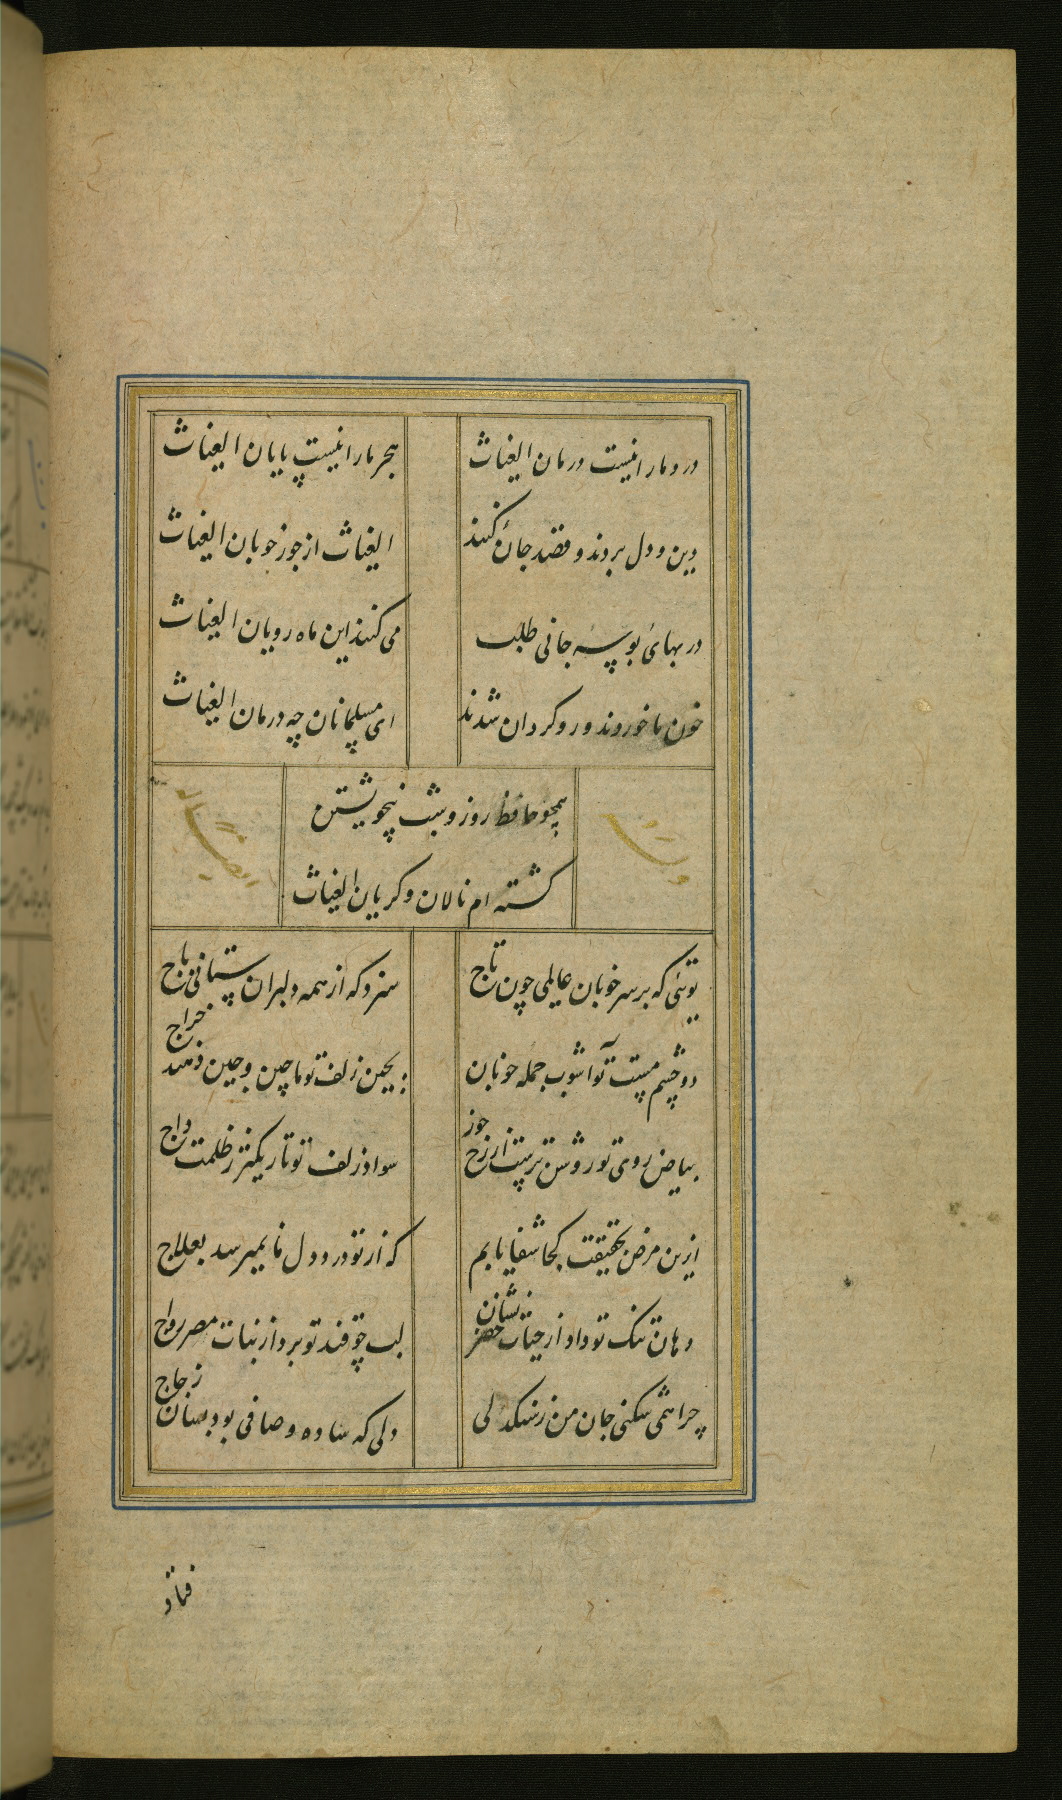 درد ما را نیست درمان الغیاث
هجر ما را نیست پایان الغیاث
دین و دل بردند و قصد جان کنند
الغیاث از جور خوبان الغیاث
در بهای بوسه جانی طلب
می کنند این ماه رویان الغیاث
خون ما خوردند و رو کردان شدند
ای مسلمانان چه درمان الغیاث
همچو حافظ روز و شب بیخویشتن
کشته ام نالان و کریان الغیاث
توئی که بر سر خوبان عالمی چون تاج
سزد که از همه دلبران ستانی باج
دو چشم مست تو آشوب جمله خوبان
بچین زلف تو ماچین و چین دهند خراج
بیاض روی تو روشن تر است از رخ حور
سواد زلف تو تاریکتر ز ظلمت داج
ازین مرض بحقیقت کجا شفا یابم
که از تو درد دل ما نمیرسد بعلاج
دهان تنک تو داد از حیات خضر نشان
لب چو قند تو برد از نبات مصر رواج
چرا همی شکنی جان من ز سنکدلی
دلی که ساده و صافی بود بسان زجاج
فتاد